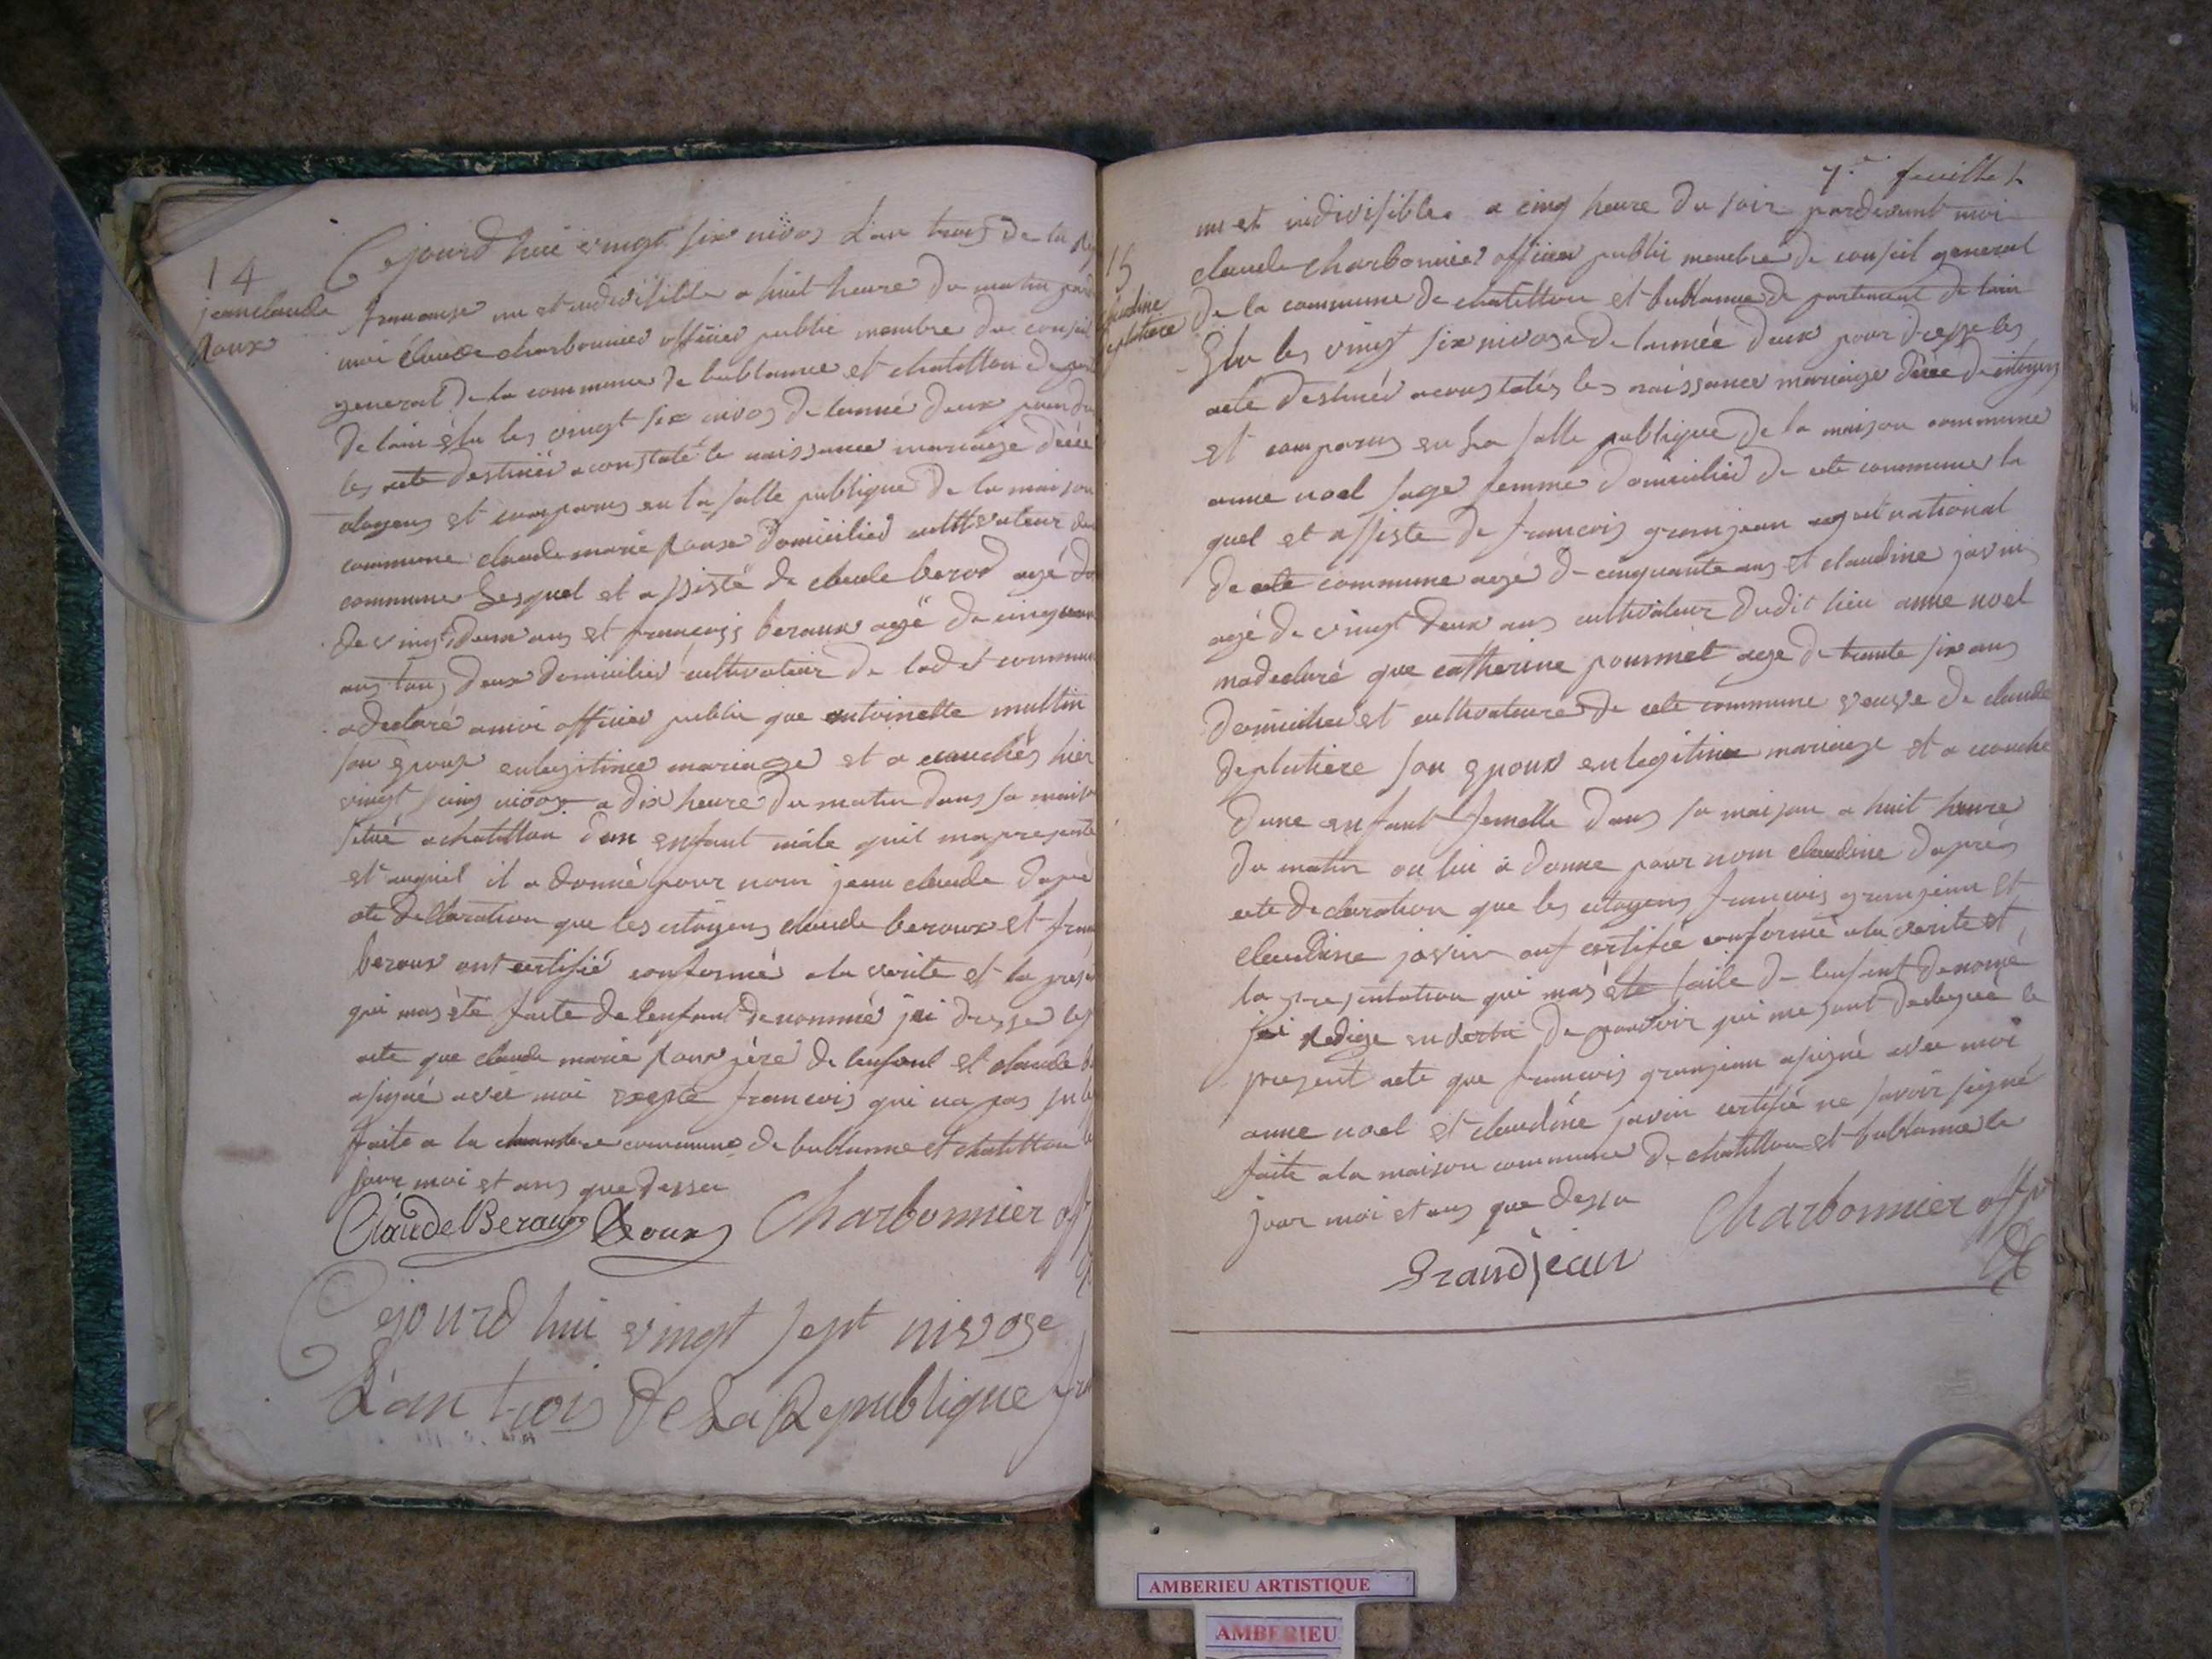 14
jean claude
Roux
Cejourd hui vingt six nivos L'an trois De la Rep
francaise un et indivisible a huit heure Du matin pard
moi claude charbonnier officier public membre du conseil
general De la commune De bublanne et chatillon De part
De lain élu les vingt six nivos De lanné Deux pour
les acte Destinéer a constaté le naissance mariage Décé
citoyens et comparus en la salle publique De la maison
commune claude marie Roux Domicilier cultivateur
commune Lesquel et assisté De claude berod agé
De vingt Deux ans et francois beraux agé De cinquante
ans tous Deux Domicilier cultivateur De ladit commune
a declaré a moi officier public que antoinette
son epoux en legitime mariage et a couchés hier
vingt cinq nivos a dix heure Du matin Dans sa maison
situé a chatillon d'un enfant mâle quil ma presenté
et auquel il a donné pour nom jean claude Daprè
cete Declaration que les citoyens claude beroux et fran
beroux ont certifié conformé a la verite et la présen
qui mas été faite De lenfant Denommé jai Dresse les
acte que claude marie Roux père De lenfant et claude b
asigné avec moi excepté francois qui na pas su
faite a la commune De bublanne et chatillon le
jour moi et ans que Dessu
Claude Beraux Roux Charbonnier off p
Cejourd hui vingt sept nivose
L'an trois De La Republique fra
7e feuillet
15
claudine
deplatiere
un et indivisible a cinq heure Du soir pardevant moi
claude charbonnier officier public membre De conseil general
De la commune De chatillon et bublanne De partement De lain
Elu les vingt six nivose De lannée Deux pour Dresse les
acte Destinéer a constatés les naissance mariage Décé De citoyens
et comparus en La salle publique De la maison commune
anne noel sage femme Domicilier De cete commune la
quel et assiste De francois granjean agent national
De cete commune agé De cinquante ans et claudine javin
agé De vingt Deux ans cultivateur Dudit lieu anne noel
madeclaré que catherine pournet agé De trante six ans
Domiciliee et cultivateure De cete commune veuve De claude
Deplatiere son epoux en legitime mariage et a couche
Dune enfant femelle Dans sa maison a huit heure
Du matin on lui à Donne pour nom claudine Daprès
cete Declaration que les citoyens francois granjean et
claudine javin ont certifié conforme a la verite et
la presentation qui mas été faite De lenfent Denomé
jai redige en De pouvoir qui me sont Delegué le
present acte que francois granjean asigné avec moi
anne noel et claudine javin certifié ne savoir signé
faite a la maison commune De chatillon et bublanne le
jour moi et ans que Dessu
Charbonnier off p
Grandjean
AMBERIEU ARTISTIQUE
AMBERIEU